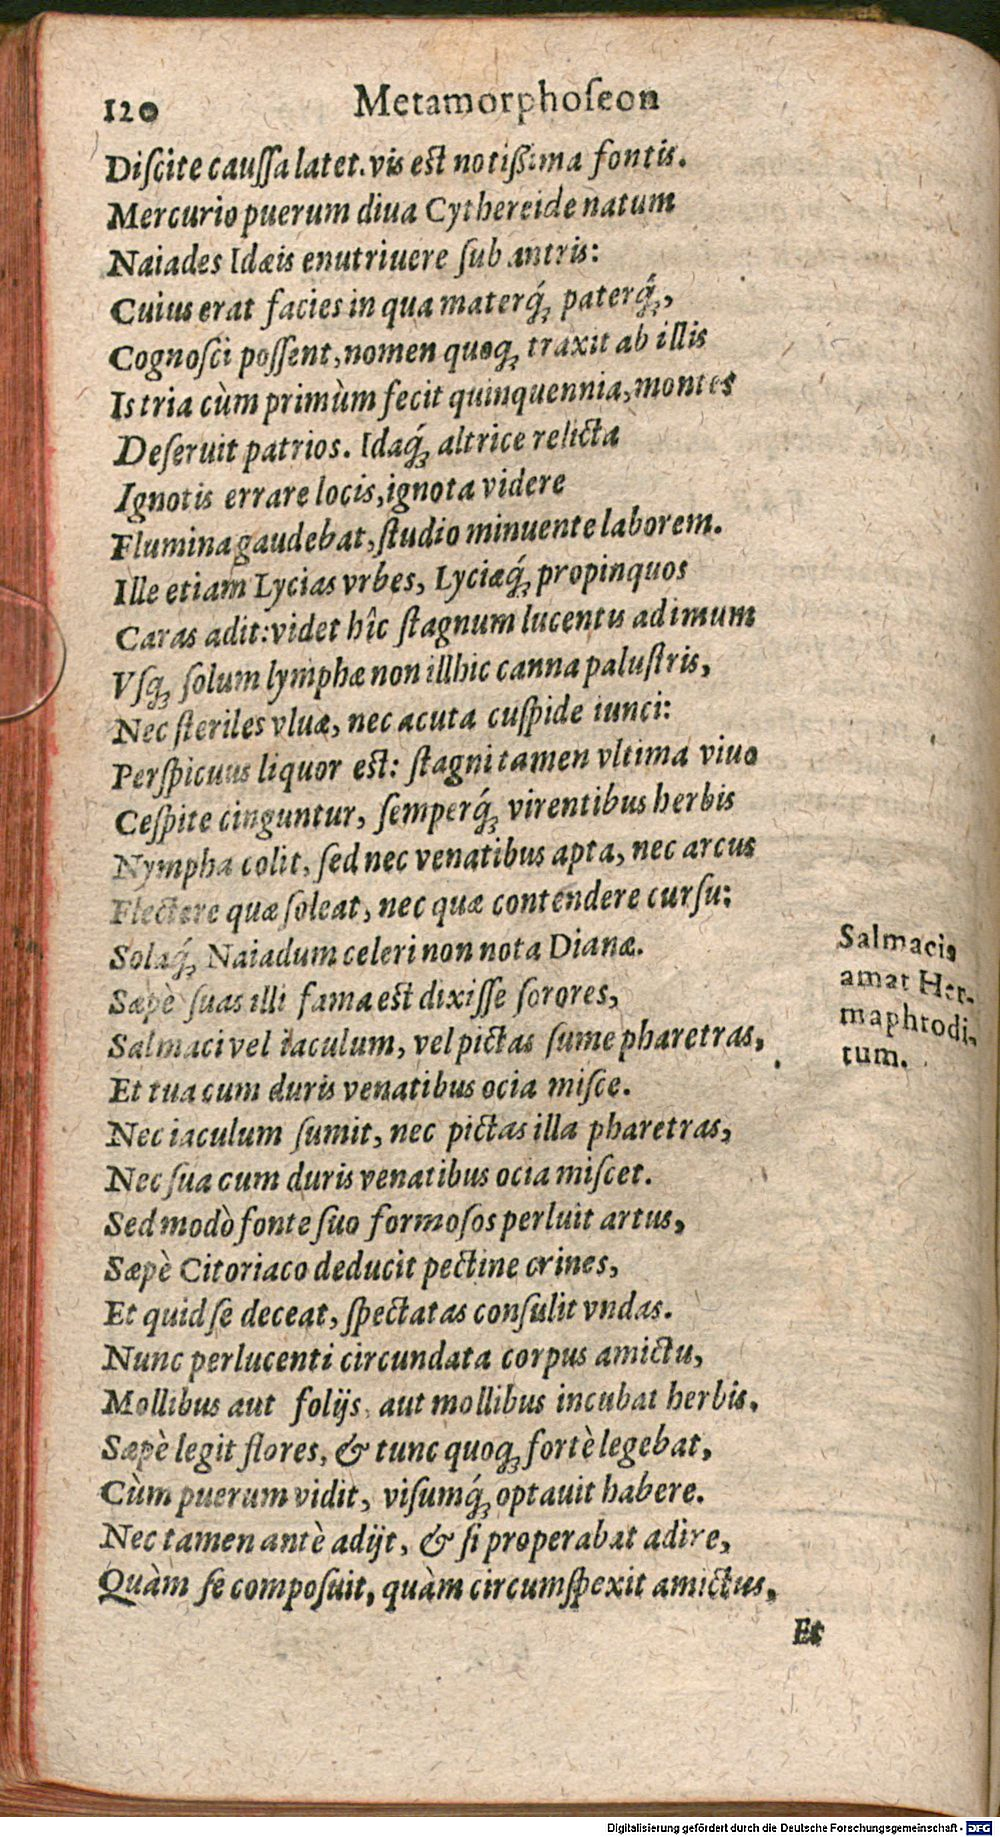 120 Metamorphoſeon
Diſcite cauſſa latet. vis est notißima fontis.
Mercurio puerum diua Cythereide natum
Naiades Idæis enutriuere ſub antris:
Cuius erat facies in qua materq́ꝫ paterq́ꝫ,
Cognoſci poſſent, nomen quoqꝫ traxit ab illis
Is tria cùm primùm fecit quinquennia, montes
Deſeruit patrios. Idaq́ꝫ altrice relicta
Ignotis errare locis, ignota videre
Flumina gaudebat, ſtudio minuente laborem.
Ille etiam Lycias vrbes, Lyciæq́ꝫ propinquos
Caras adit: videt hîc ſtagnum lucentis ad imum
Vſqꝫ ſolum lymphæ non illhic canna paluſtris,
Nec ſteriles vluæ, nec acuta cuſpide iunci:
Perſpicuus liquor est: ſtagni tamen vltima viuo
Ceſpite cinguntur, ſemperq́ꝫ virentibus herbis
Nympha colit, ſed nec venatibus apta, nec arcus
Flectere quæ ſoleat, nec quæ contendere curſu:
Solaq́ꝫ Naiadum celeri non nota Dianæ.
Sæpè ſuas illi fama est dixiſſe ſorores,
Salmaci vel iaculum, vel pictas ſume pharetras,
Et tua cum duris venatibus ocia miſce.
Nec iaculum ſumit, nec pictas illa pharetras,
Nec ſua cum duris venatibus ocia miſcet.
Sed modò fonte ſuo formoſos perluit artus,
Sæpè Citoriaco deducit pectine crines,
Et quid ſe deceat, ſpectatas conſulit vndas.
Nunc perlucenti circundata corpus amictu,
Mollibus aut folijs, aut mollibus incubat herbis.
Sæpè legit flores, & tunc quoqꝫ fortè legebat,
Cùm puerum vidit, viſumq́ꝫ optauit habere.
Nec tamen antè adijt, & ſi properabat adire,
Quàm ſe compoſuit, quàm circumſpexit amictus,
Et
Salmacis
amat Her-
maphrodi-
tum.
Digitalisierung gefördert durch die Deutsche Forschungsgemeinschaft - DFG